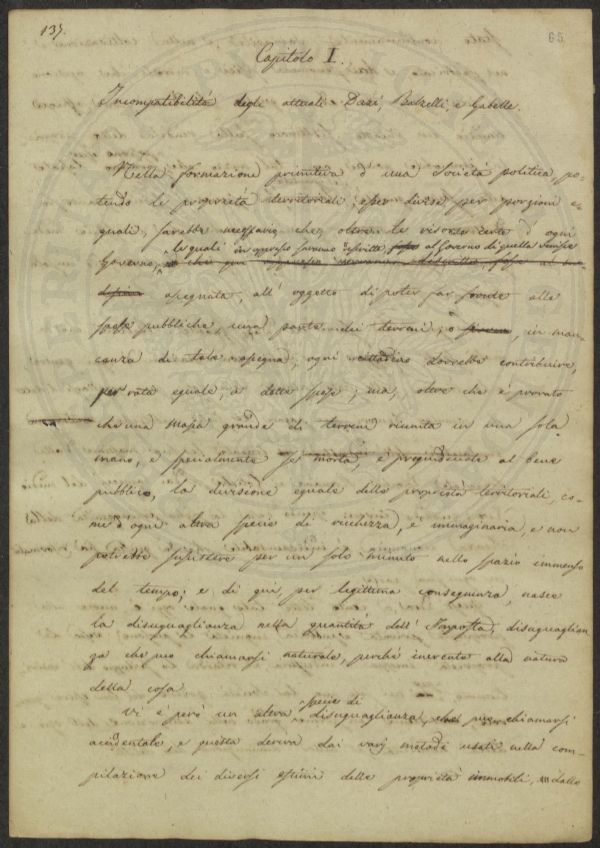 137.
65
Capitolo I.
Incompatibilità degli attuali Dazi, Balzelli, e Gabelle.
Nella formazione primitiva d'una Società politica, po-
tendo le proprietà territoriali, esser divise per porzioni e-
guali, sarebbe necessario che, oltre le risorse certe d'ogni
le quali in appresso saranno descritte, fosse al Governo di quella
Governo,
assegnata, all'oggetto di poter far fronte alle
spese pubbliche, una parte dei terreni; o in man-
canza di tale assegna, ogni cittadino dovrebbe contribuire,
per rata eguale, a dette spese; ma, oltre che è provato
che una massa grande di terreni riunita in una sola
mano, e specialmente se morta, è pregiudicevole al bene
pubblico, la divisione eguale delle proprietà territoriali, co-
me d'ogni altra specie di ricchezza, è immaginaria, e non
potrebbe sussistere per un solo minuto nello spazio immenso
del tempo; e di quì per legittima conseguenza, nasce
la disuguaglianza nella quantità dell'Imposta, disuguaglian
za che può chiamarsi naturale, perché inerente alla natura
della cosa
specie di
Vi è però un altra disuguaglianza, che può chiamarsi
accidentale, e questa deriva dai varj metodi usati nella com-
pilazione dei diversi estimi delle proprietà immobili, dallo